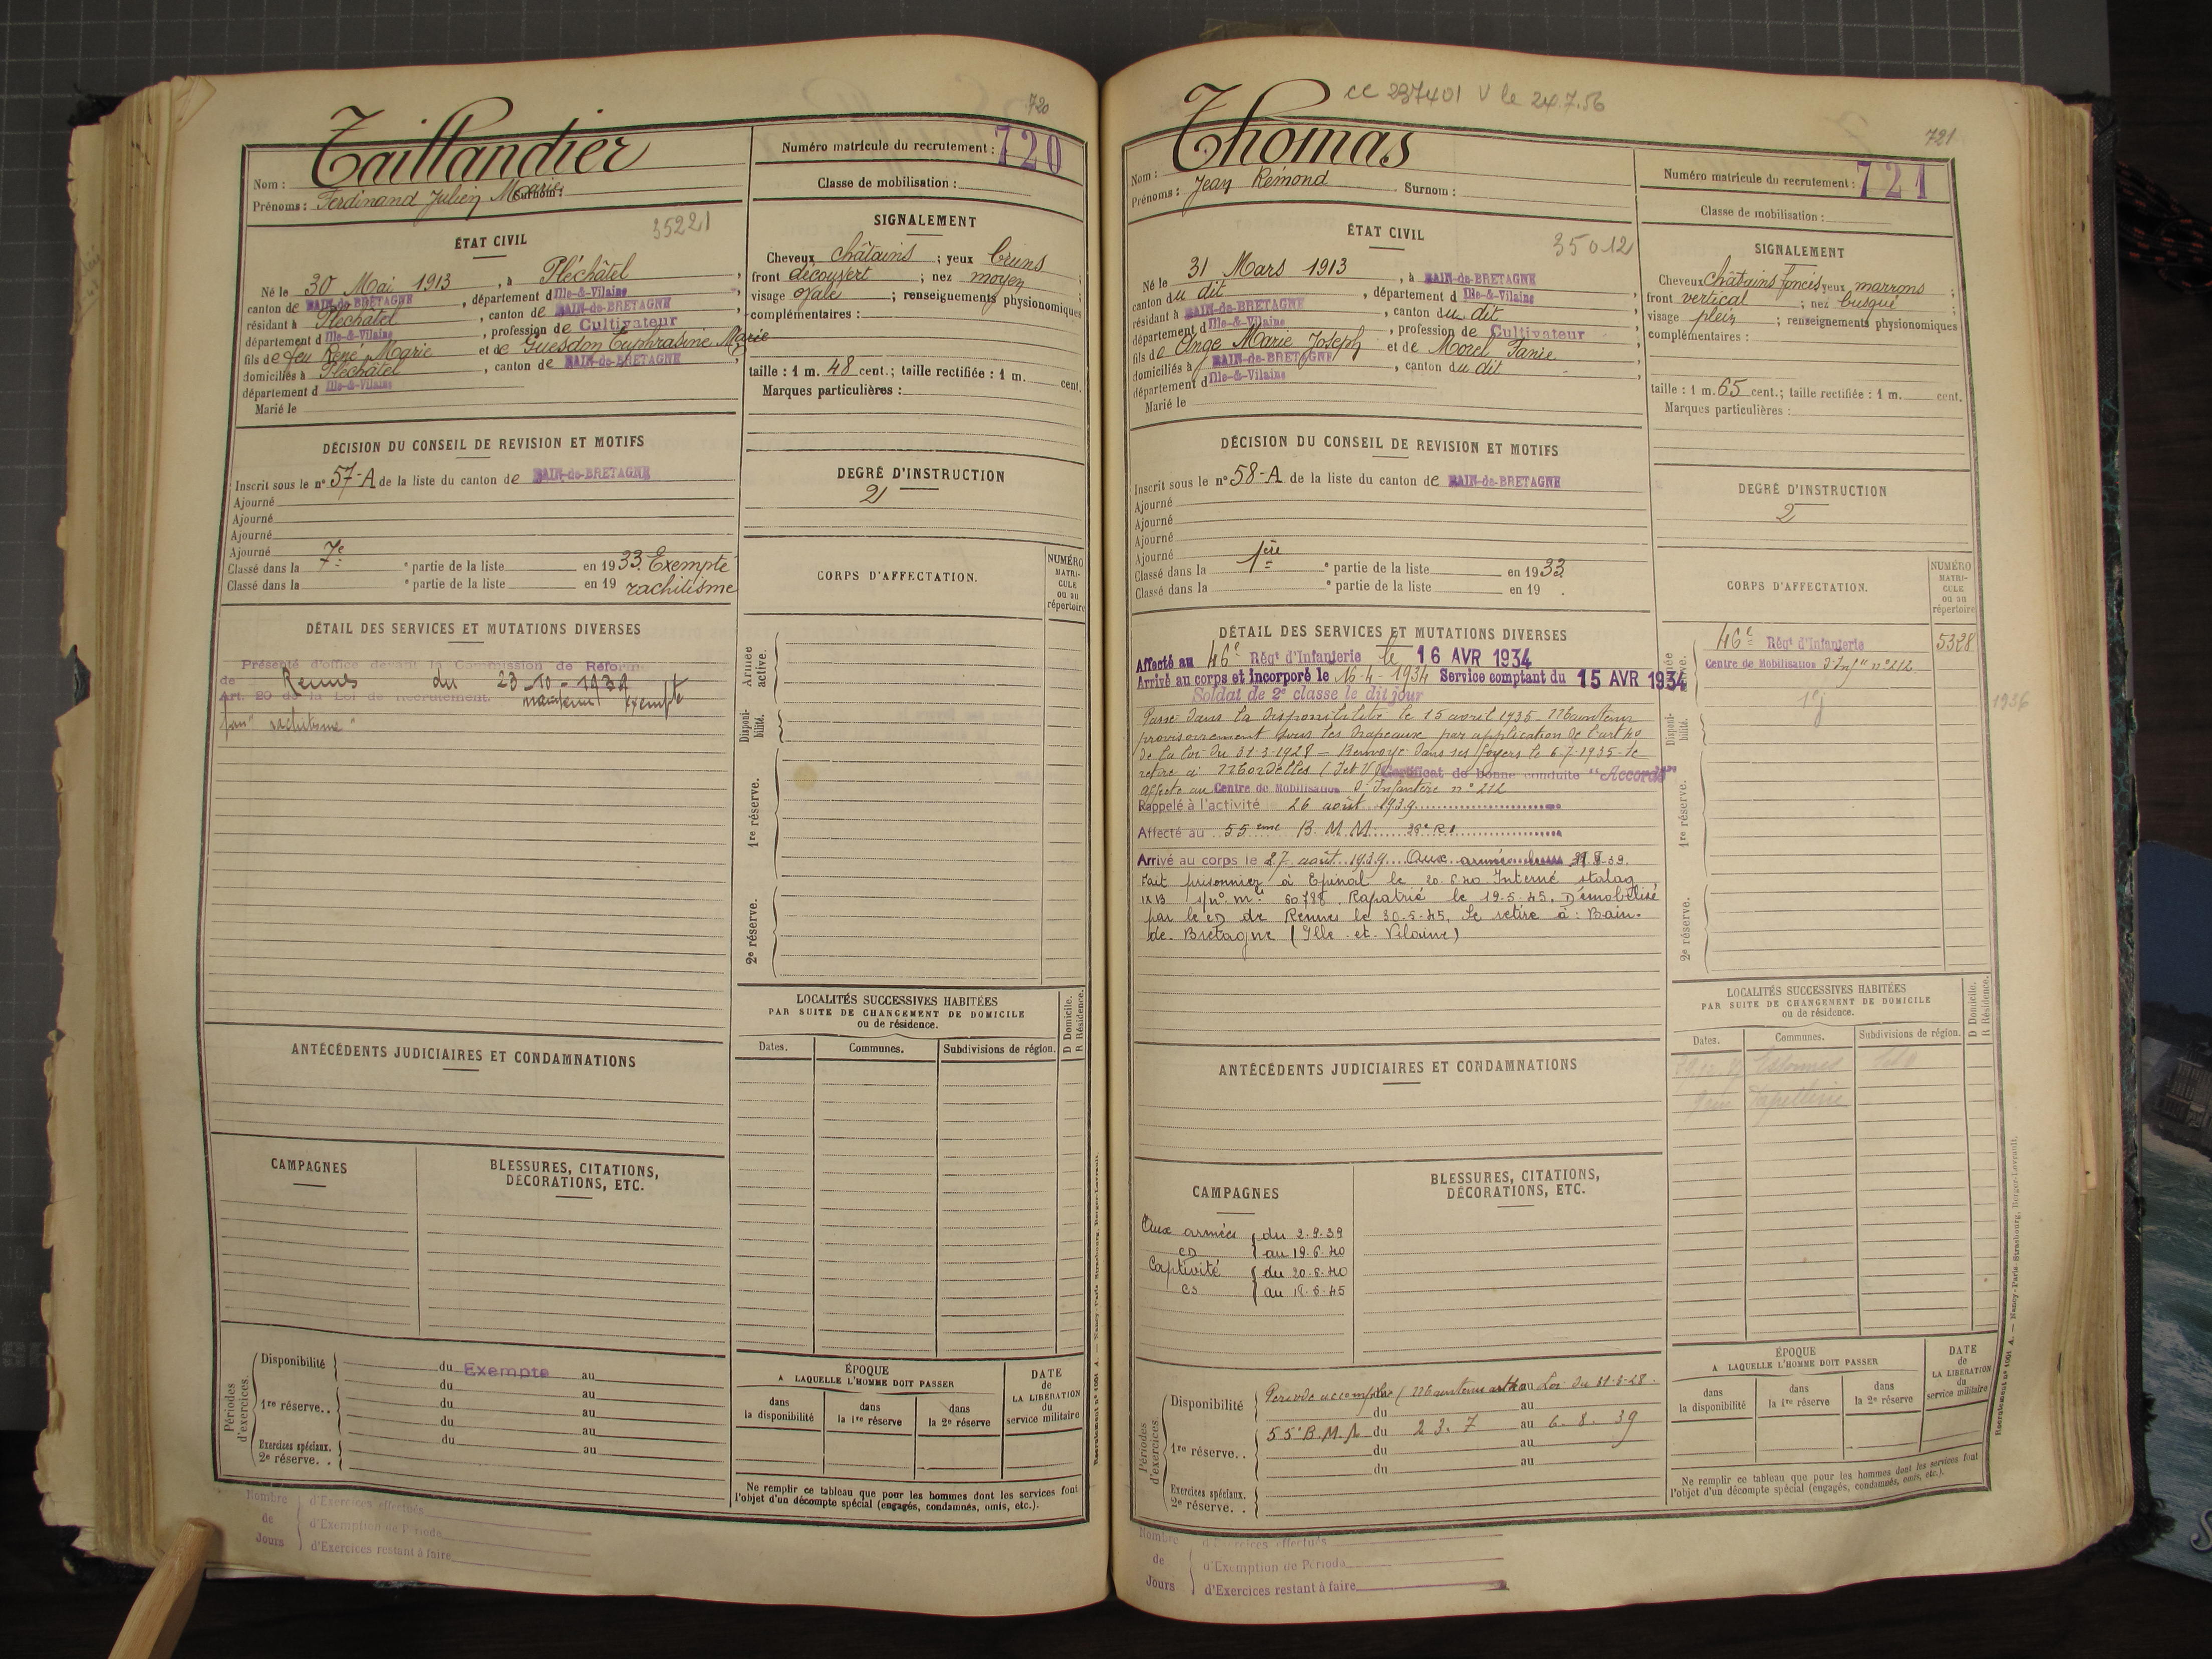 720
Taillandier
Nom :
Prénoms : Ferdinand Julien Marie Surnom :
Numéro matricule du recrutement : 720
Classe de mobilisation :
35221
ÉTAT CIVIL
Né le 30 Mai 1913, à Pléchâtel,
canton de BAIN-de-BRETAGNE, département d Ille-&-Vilaine,
résidant à Pléchâtel, canton de BAIN-de-BRETAGNE,
département d Ille-&-Vilaine, profession de Cultivateur
fils de feu René Marie et de Guesdon Euphrasine Marie
domiciliés à Pléchâtel, canton de BAIN-de-BRETAGNE,
département d Ille-&-Vilaine
Marié le
SIGNALEMENT
Cheveux châtains ; yeux bruns ;
front découvert ; nez moyen ;
visage ovale ; renseignements physionomiques
complémentaires :
taille : 1 m. 48 cent.; taille rectifiée : 1 m. cent.
Marques particulières :
DÉCISION DU CONSEIL DE REVISION ET MOTIFS
Inscrit sous le n° 57-A de la liste du canton de BAIN-de-BRETAGNE
Ajourné
Ajourné
Ajourné
Ajourné
Classé dans la 7e ° partie de la liste en 1933. Exempté
Classé dans la ° partie de la liste en 19 rachitisme
DEGRÉ D'INSTRUCTION
2
CORPS D'AFFECTATION.
NUMÉRO
MATRI-
CULE
ou au
répertoire
DÉTAIL DES SERVICES ET MUTATIONS DIVERSES
Présenté d'office devant la Commission de Réforme
de Rennes du 23-10-1939
Art. 20 de la Loi de Recrutement. maintenu exempté
pour "rachitisme"
Armée
active.
Disponi-
bilité.
1re réserve.
2e réserve.
ANTÉCÉDENTS JUDICIAIRES ET CONDAMNATIONS
LOCALITÉS SUCCESSIVES HABITÉES
PAR SUITE DE CHANGEMENT DE DOMICILE
ou de résidence.
D Domicile.
R Résidence.
Dates. Communes. Subdivisions de région.
CAMPAGNES
BLESSURES, CITATIONS,
DÉCORATIONS, ETC.
Périodes
d'exercices.
Disponibilité du Exempté au
du au
1re réserve.. du au
du au
Exercices spéciaux. du au
2e réserve. .
ÉPOQUE
A LAQUELLE L'HOMME DOIT PASSER
dans
la disponibilité
dans
la 1re réserve
dans
la 2e réserve
DATE
de
LA LIBÉRATION
du
service militaire
Ne remplir ce tableau que pour les hommes dont les services font
l'objet d'un décompte spécial (engagés, condamnés, omis, etc.).
Nombre
de
Jours
d'Exercices effectués
d'Exemption de Période
d'Exercices restant à faire
cc 237401 V le 24.7.56
721
Thomas
Nom :
Prénoms : Jean Rémond Surnom :
Numéro matricule du recrutement : 721
Classe de mobilisation :
35012
ÉTAT CIVIL
Né le 31 Mars 1913, à BAIN-de-BRETAGNE
canton du dit, département d Ille-&-Vilaine,
résidant à BAIN-de-BRETAGNE, canton du dit,
département d Ille-&-Vilaine, profession de Cultivateur
fils de Ange Marie Joseph et de Morel Fanie
domiciliés à BAIN-de-BRETAGNE, canton du dit,
département d Ille-&-Vilaine
Marié le
SIGNALEMENT
Cheveux châtains foncés yeux marrons ;
front vertical ; nez busqué ;
visage plein ; renseignements physionomiques
complémentaires :
taille : 1 m. 65 cent.; taille rectifiée : 1 m. cent.
Marques particulières :
DÉCISION DU CONSEIL DE REVISION ET MOTIFS
Inscrit sous le n° 58-A de la liste du canton de BAIN-de-BRETAGNE
Ajourné
Ajourné
Ajourné
Ajourné
Classé dans la 1ère ° partie de la liste en 1933
Classé dans la ° partie de la liste en 19 .
DEGRÉ D'INSTRUCTION
2
CORPS D'AFFECTATION.
NUMÉRO
MATRI-
CULE
ou au
répertoire
46e Régt d'Infanterie 5328
Centre de Mobilisation d'Infie n° 212
1936
DÉTAIL DES SERVICES ET MUTATIONS DIVERSES
Affecté au 46e Régt d'Infanterie le 16 AVR 1934
Arrivé au corps et incorporé le 16-4-1934 Service comptant du 15 AVR 1934
Soldat de 2e classe le dit jour
Passé dans la disponibilité le 15 avril 1935 - Maintenu
provisoirement sous les drapeaux par application de l'art 40
de la loi du 31-3-1928 - Renvoyé dans ses foyers le 6-7-1935 - Se
retire à Mordelles (I et V) Certificat de bonne conduite "Accordé"
Affecté au Centre de Mobilisation d'Infanterie n° 212
Rappelé à l'activité 26 août 1939
Affecté au 55ème B.M.M.
Arrivé au corps le 27 août 1939 Aux armées
Fait prisonnier à Epinal le 20.6.40. Interné stalag
IX B s/n° mle 60798. Rapatrié le 19-5-45. Démobilisé
par le CD de Rennes le 30-5-45. Se retire à : Bain-
de-Bretagne (Ille-et-Vilaine)
Disponi-
bilité.
1re réserve.
2e réserve.
ANTÉCÉDENTS JUDICIAIRES ET CONDAMNATIONS
LOCALITÉS SUCCESSIVES HABITÉES
PAR SUITE DE CHANGEMENT DE DOMICILE
ou de résidence.
D Domicile.
R Résidence.
Dates. Communes. Subdivisions de région.
CAMPAGNES
BLESSURES, CITATIONS,
DÉCORATIONS, ETC.
Aux armées du 2.9.39
CD au 19.6.40
Captivité du 20.6.40
CS au 18.5.45
Périodes
d'exercices.
Disponibilité Période accomplie (Maintenu art 40 Loi du 31-3-28.
du au
1re réserve.. 55e B.M.M. du 23.7 au 6.8.39
du au
du au
Exercices spéciaux.
2e réserve. .
ÉPOQUE
A LAQUELLE L'HOMME DOIT PASSER
dans
la disponibilité
dans
la 1re réserve
dans
la 2e réserve
DATE
de
LA LIBÉRATION
du
service militaire
Ne remplir ce tableau que pour les hommes dont les services font
l'objet d'un décompte spécial (engagés, condamnés, omis, etc.).
Nombre
de
Jours
d'Exercices effectués
d'Exemption de Période
d'Exercices restant à faire